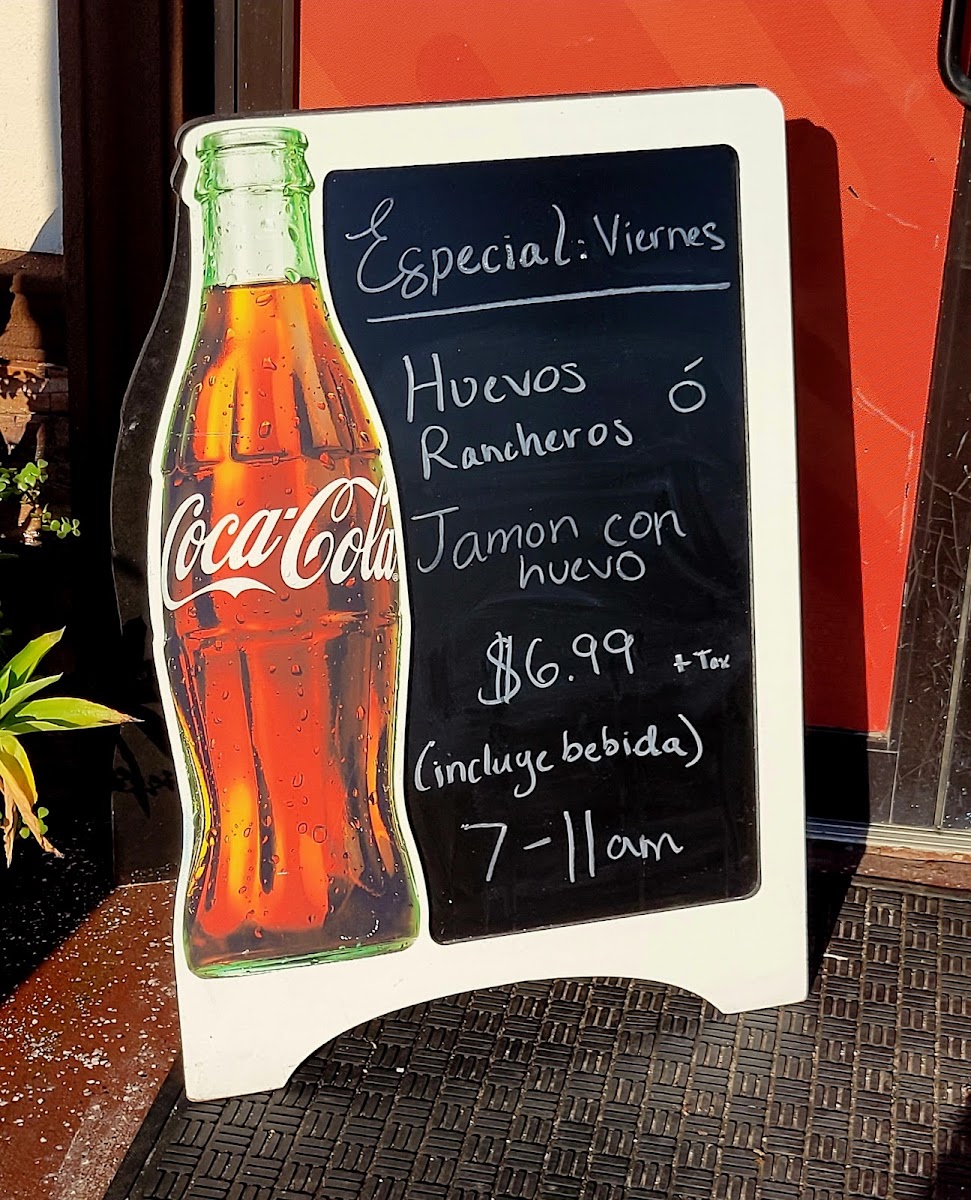 Especial: Viernes
Huevos ó
Rancheros
Jamon con
huevo
$6.99 + Tax
(incluye bebida)
7-11am
Coca-Cola